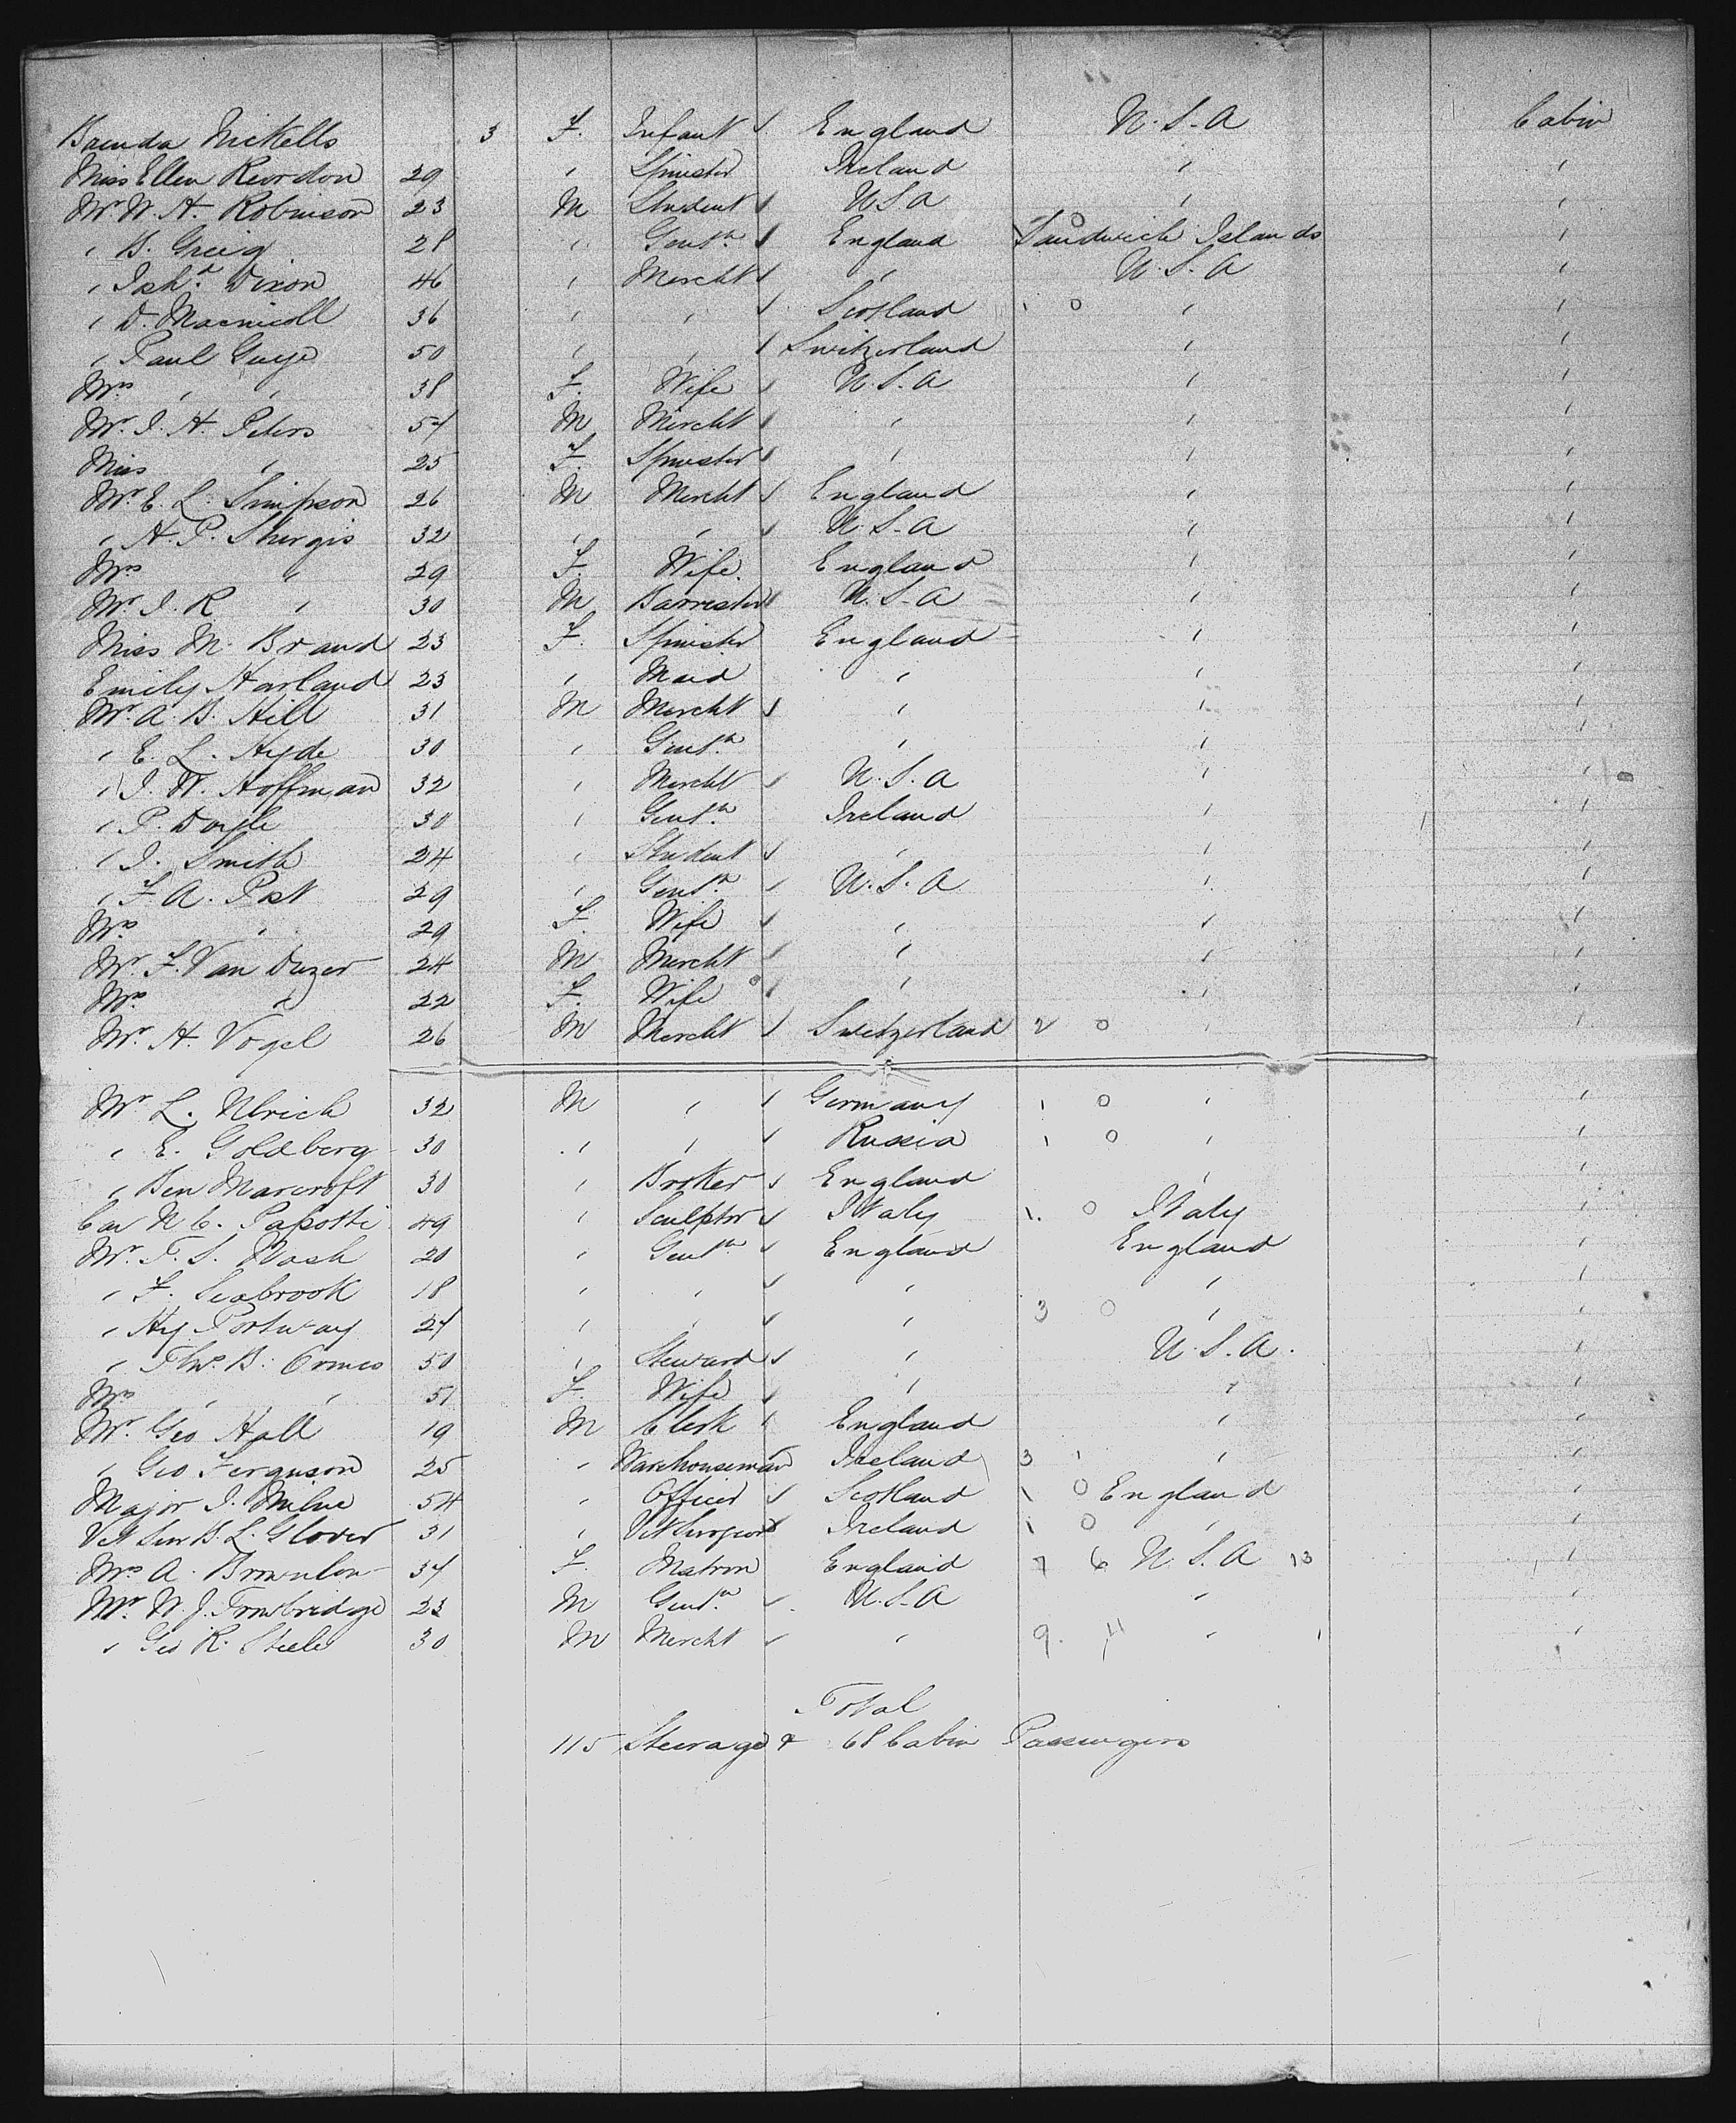 Brenda Nickells 3 F. Infant England U.S.A Cabin
Miss Ellen Reordon 29 " Spinster Ireland " "
Mr W. H. Robinson 23 M Student U.S.A " "
" B. Greig 28 " Gentn England Sandwich Islands "
" Dixon 46 " Mercht " U.S.A "
" D. Macnicoll 36 " " Scotland 1 0 " "
" Paul Guye 50 " " Switzerland " "
Mrs " " 38 F. Wife U.S.A " "
Mr. J. H. Peters 57 M Mercht " " "
Miss " 25 F. Spinster " " "
Mr E. L. Simpson 26 M Mercht England " "
" H. P. Sturgis 32 " " U.S.A " "
Mrs " 29 F. Wife England " "
Mr. J. R " 30 M Barrister U.S.A " "
Miss M. Brand 23 F. Spinster England " "
Emily Harland 23 " Maid " " "
Mr A. B. Hill 31 M Mercht " " "
" E. L. Hyde 30 " Gentn " " "
" J. W. Hoffman 32 " Mercht U.S.A " "
" P. Doyle 30 " Gentn Ireland " "
" J. Smith 24 " Student " " "
" F. A. Post 29 " Gentn U.S.A " "
Mrs " 29 F. Wife " " "
Mr. F. Van Duzer 24 M Mercht " " "
Mrs " 22 F. Wife " " "
Mr. H. Vogel 26 M Mercht Switzerland 2 0 " "
Mr L. Ulrich 32 M " Germany 1 0 " "
" E. Goldberg 30 " " Russia 1 0 " "
" Ben Marcroft 30 " Broker England " "
49 " Sculptor Italy 1. 0 Italy "
Mr. T. S. Nash 20 " Gentn England England "
" F. Seabrook 18 " " " " "
" Hy Portway 27 " " " 3 0 " "
" Thos. B. Ormes 50 " Steward " U.S.A. "
Mrs " " 51 F. Wife " " "
Mr. Geo Hall 19 M Clerk England " "
" Geo Ferguson 25 " Warehouseman Ireland 3 1 " "
Major J. Milne 54 " Officer Scotland 1 0 England "
Vet Sur B. L. Glover 31 " Vet Surgeon Ireland 1 0 " "
Mrs A. Brownlow 37 F. Matron England 7 6 U.S.A 13 "
Mr. W. J. Trowbridge 23 M Gentn U.S.A " "
" Geo R. Steele 30 M Mercht " 9. 11 " "
Total
115 Steerage & 68 Cabin Passengers